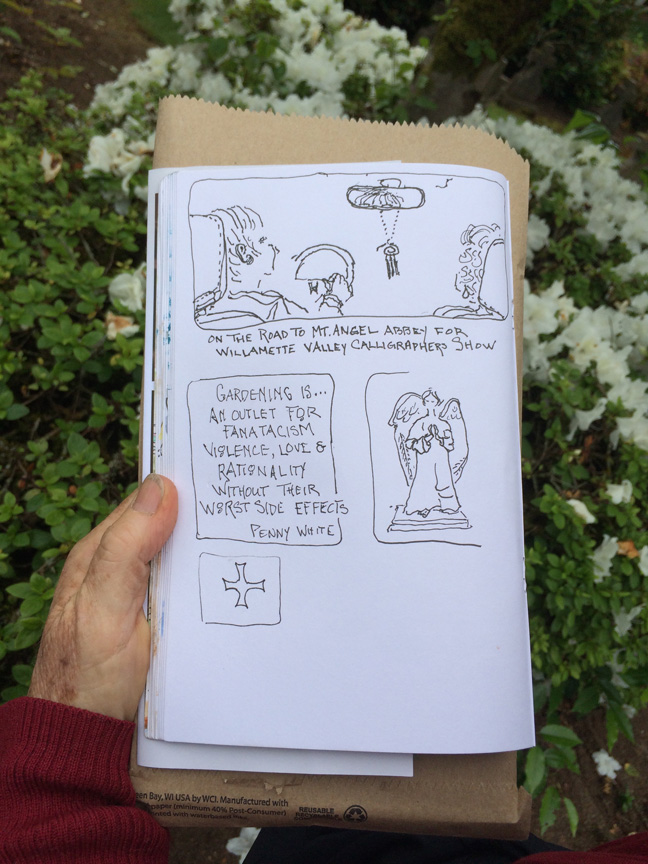 ON THE ROAD TO MT. ANGEL ABBEY FOR
WILLAMETTE VALLEY CALLIGRAPHERS SHOW
GARDENING IS...
AN OUTLET FOR
FANATACISM
VIOLENCE, LOVE &
RATIONALITY
WITHOUT THEIR
WORST SIDE EFFECTS
PENNY WHITE
Bay, WI USA by WCI. Manufactured with
paper (minimum 40% Post-Consumer)
with
REUSABLE